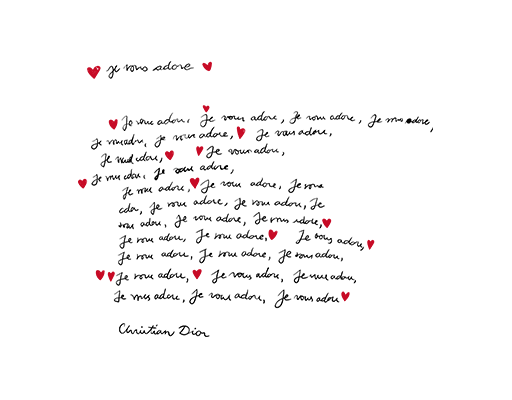 je vous adore
Je vous adore, Je vous adore, Je vous adore, Je vous adore,
Je vous adore, je vous adore, Je vous adore,
Je vous adore, Je vous adore,
Je vous adore, Je vous adore,
Je vous adore, Je vous adore, Je vous
adore, Je vous adore, Je vous adore, Je
vous adore, Je vous adore, Je vous adore,
Je vous adore, Je vous adore, Je vous adore,
Je vous adore, Je vous adore, Je vous adore,
Je vous adore, Je vous adore, Je vous adore,
Je vous adore, Je vous adore, Je vous adore
Christian Dior